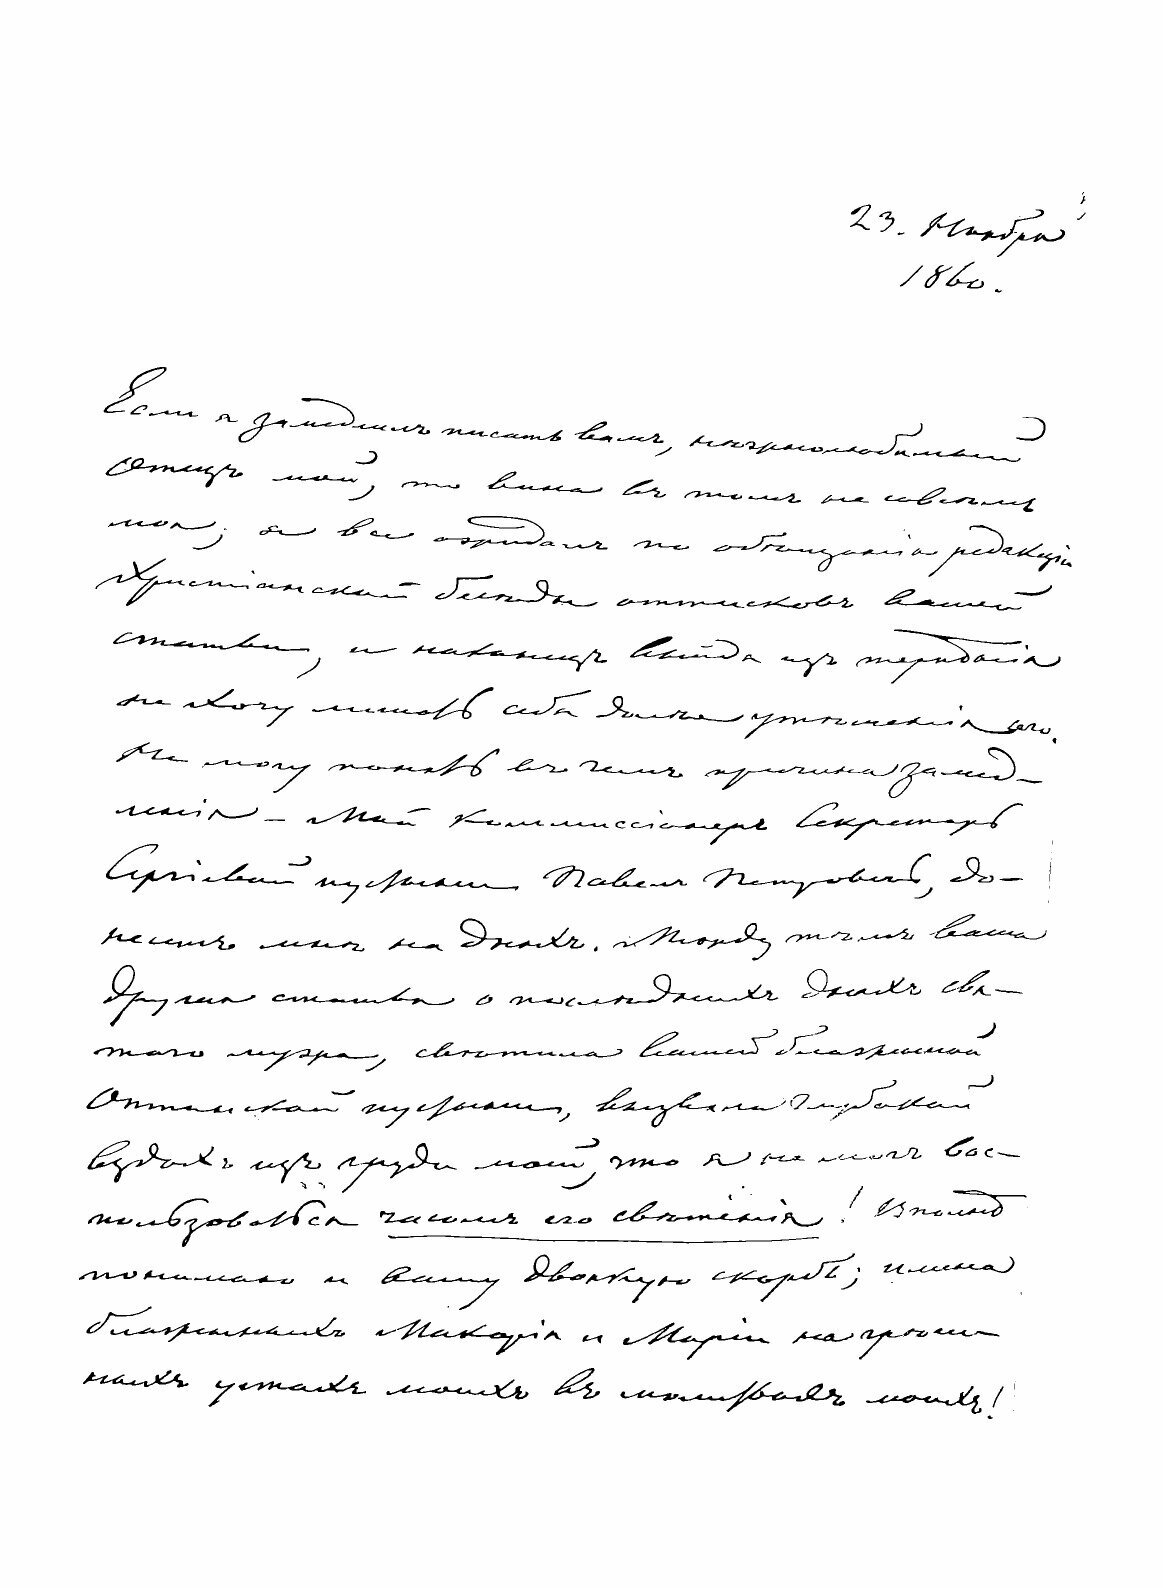 23. Ноября
1860.
Если я замедлилъ писать вамъ, неогрѣнолюбимый
Отецъ мой, то вина въ томъ не совсѣмъ
моя; я все ожидалъ по обѣщанію редакціи
Христіанской бесѣды оттисковъ вашей
статьи, и наконецъ выйдя изъ терпѣнія
не хочу лишать себя долѣе утѣшенія сего.
Не могу понять въ чемъ причина замед-
ленія – Мой Коммиссіонеръ Секретарь
Сергіевой пустыни Павелъ Петровичъ, до-
несетъ мнѣ на дняхъ. Между тѣмъ ваша
другая статья о послѣднихъ дняхъ свя-
таго мужа, свѣтила вашей блаженной
Оптинской пустыни, вызвала глубокой
вздохъ изъ груди моей, что я не могъ вос-
пользоваться часомъ его свѣтенія! Вполнѣ
понимаю и вашу двоякую скорбь; имена
блаженныхъ Макарія и Маріи на грѣш-
ныхъ устахъ моихъ въ молитвахъ моихъ!